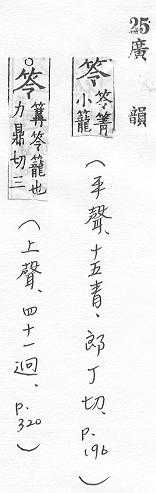 25廣韻
笭 笭箐小籠
(平聲、十五青、郎丁切、p.196)
笭 篝笭籠也力鼎切三
(上聲、四十一迥、p.320)